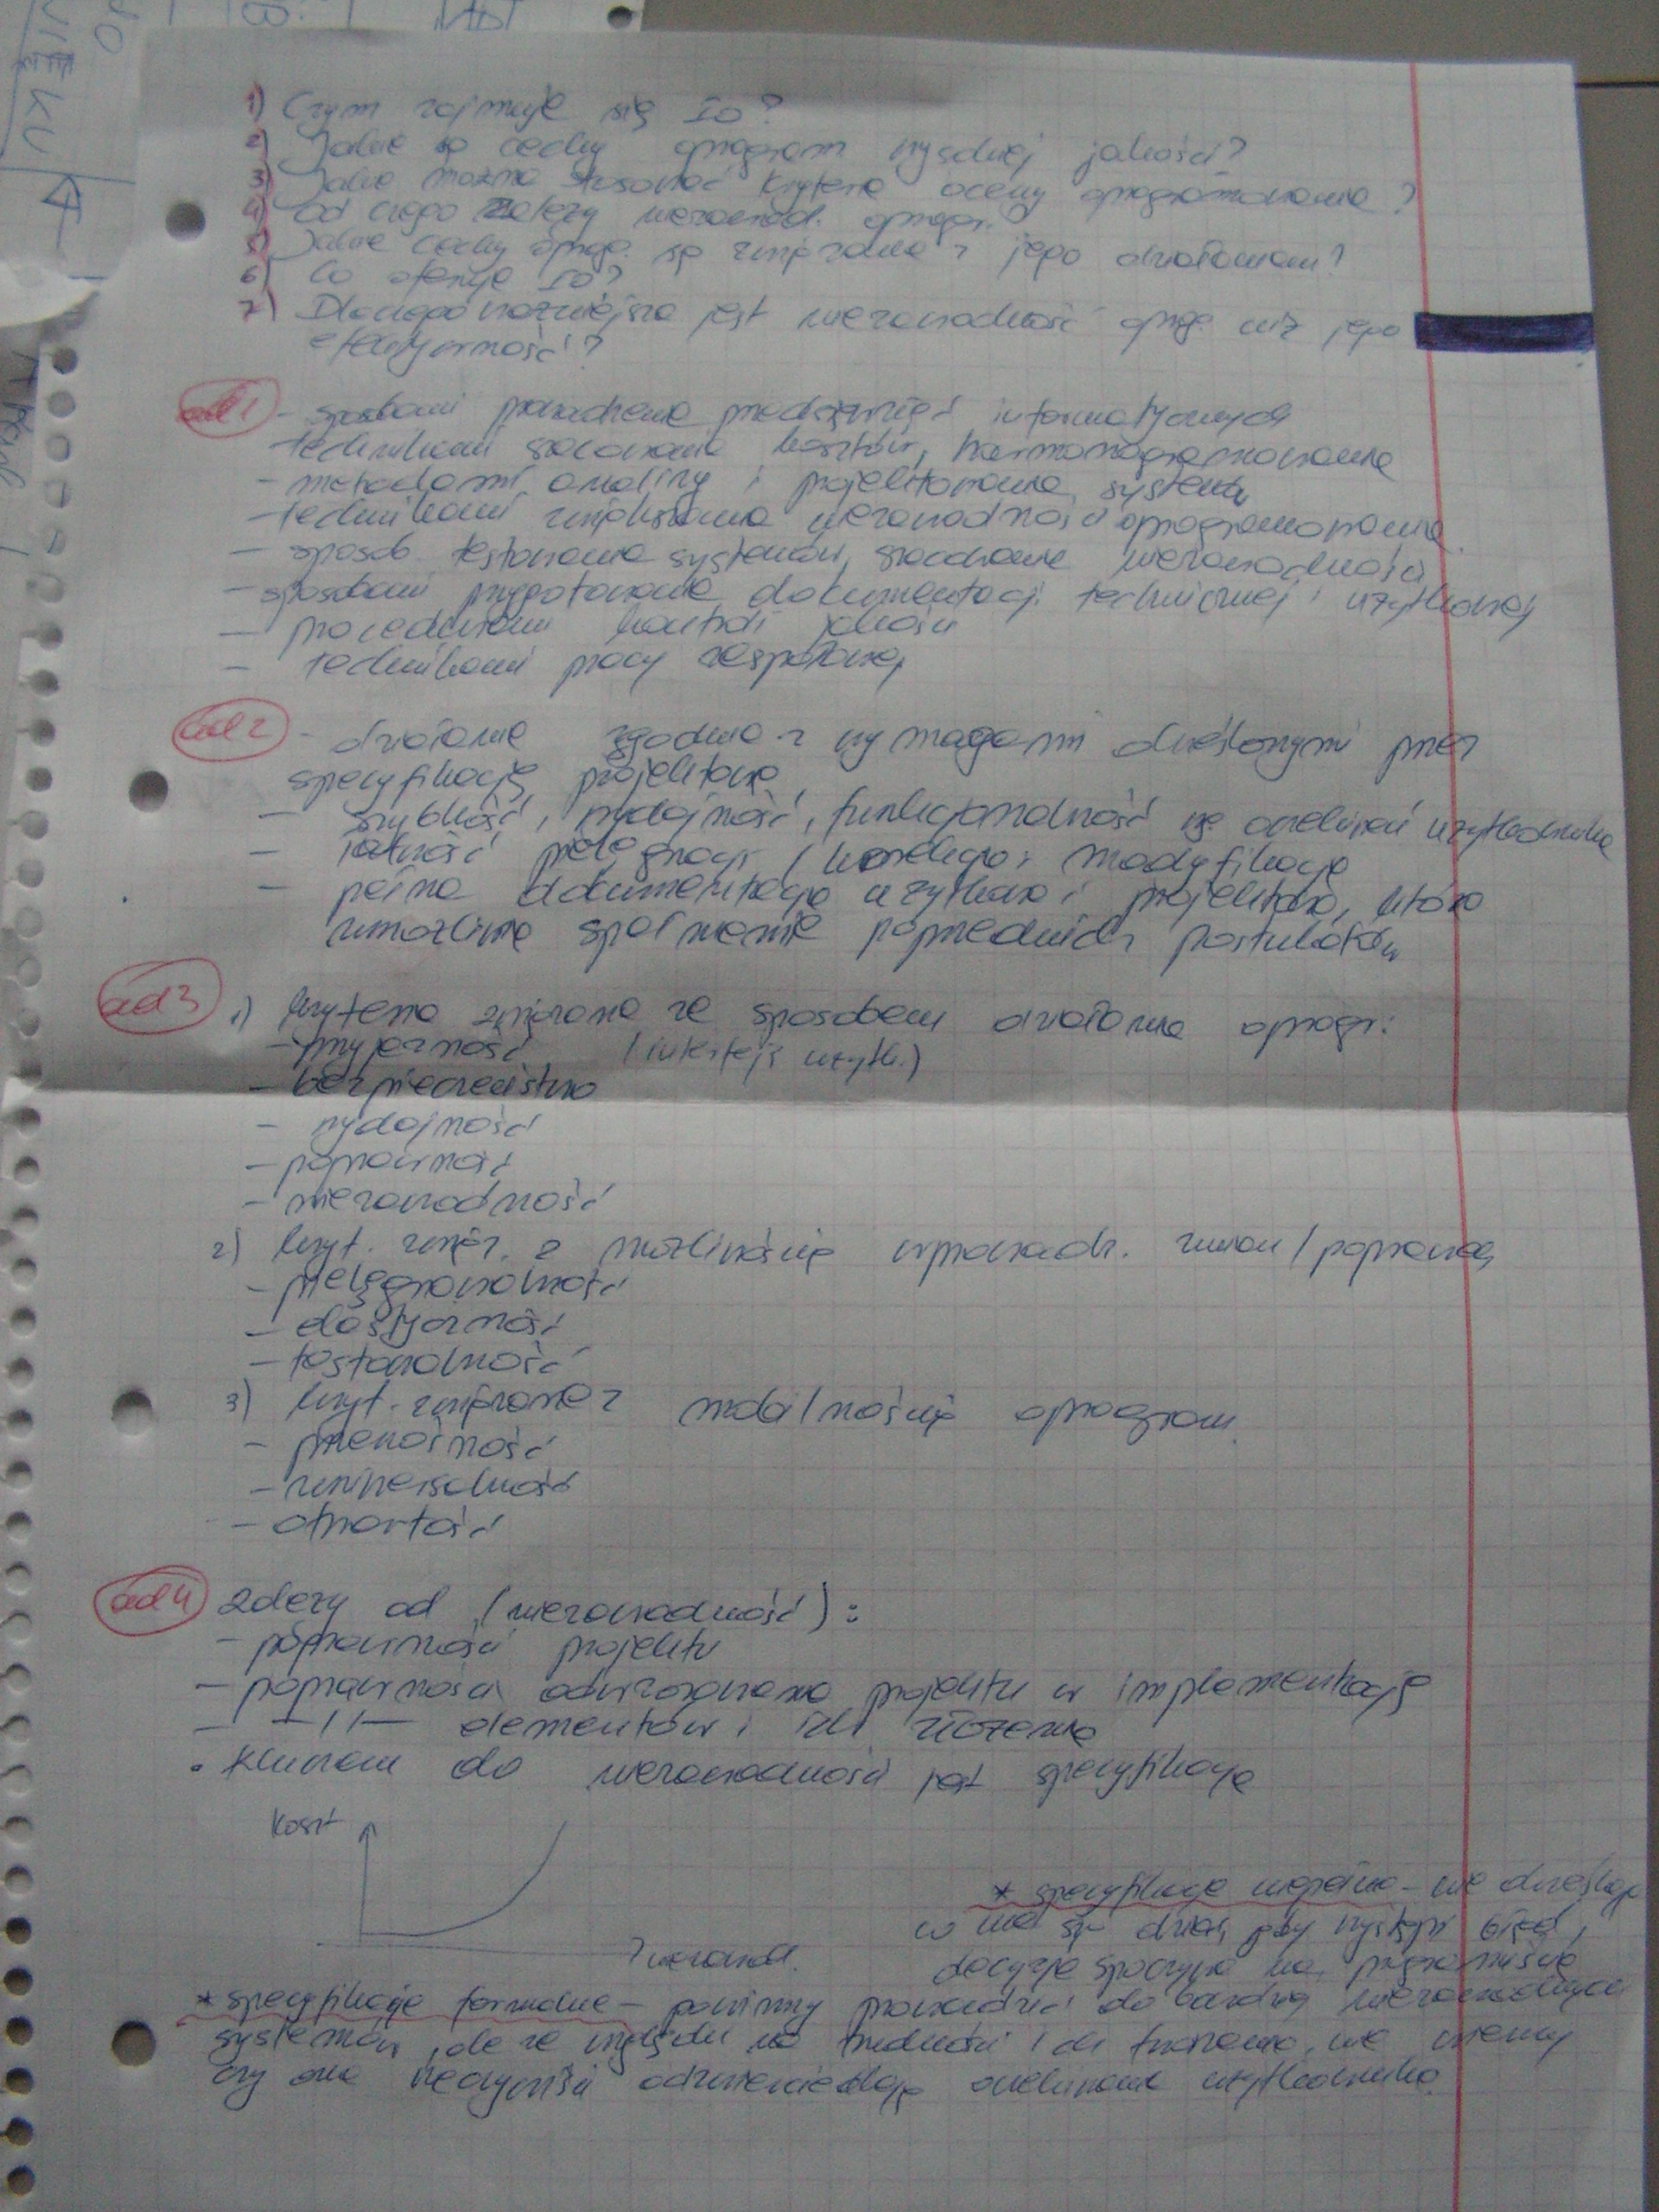 1) Czym zajmuje się IO?
2) Jakie są cechy oprogram wysokiej jakości?
3) Jakie można stosować kryteria oceny oprogramowania?
4) Od czego zależy niezawod. oprogr.?
5) Jakie cechy oprog. są związane z jego działaniem?
6) Co oferuje IO?
7) Dlaczego ważniejsza jest niezawodność oprog. niż jego
efektywność?
ad 1 - sposobami prowadzenia przedsięwzięć informatycznych
technikami szacowania kosztów, harmonogramowania
- metodami analizy i projektowania systemów
- technikami zwiększania niezawodności oprogramowania
- sposob. testowania systemów, szacowanie niezawodności
- sposobami przygotowania dokumentacji technicznej i użytkowej
- procedurami kontroli jakości
- technikami pracy zespołowej
ad 2 - działanie zgodne z wymaganiami określonymi przez
specyfikację projektową
- szybkość, wydajność, funkcjonalność wg oczekiwań użytkownika
- łatwość pielęgnacji / korekcja i modyfikacja
- pełna dokumentacja użytkowa i projektowa, która
umożliwia spełnienie poprzednich postulatów
ad 3 1) kryteria związane ze sposobem działania oprogr:
- przyjazność (interfejs użytk.)
- bezpieczeństwo
- wydajność
- poprawność
- niezawodność
2) kryt. związ. z możliwością wprowadz. zmian / poprawą
- pielęgnowalność
- elastyczność
- testowalność
3) kryt. związane z mobilnością oprogram.
- przenośność
- uniwersalność
- otwartość
ad 4 zależy od (niezawodność):
- poprawności projektu
- poprawności odwzorowania projektu w implementację
- -//- elementów i ich złożenia
• Kluczem do niezawodności jest specyfikacja
koszt
niezawod.
* specyfikacje niepełne - nie określają
co ma się dziać, gdy wystąpi błąd,
decyzja spoczywa na programiście
* specyfikacje formalne - powinny prowadzić do bardziej niezawodnych
systemów, ale ze względu na trudności ich tworzenia, nie wiemy
czy one rzeczywiści odzwierciedlają oczekiwania użytkownika.